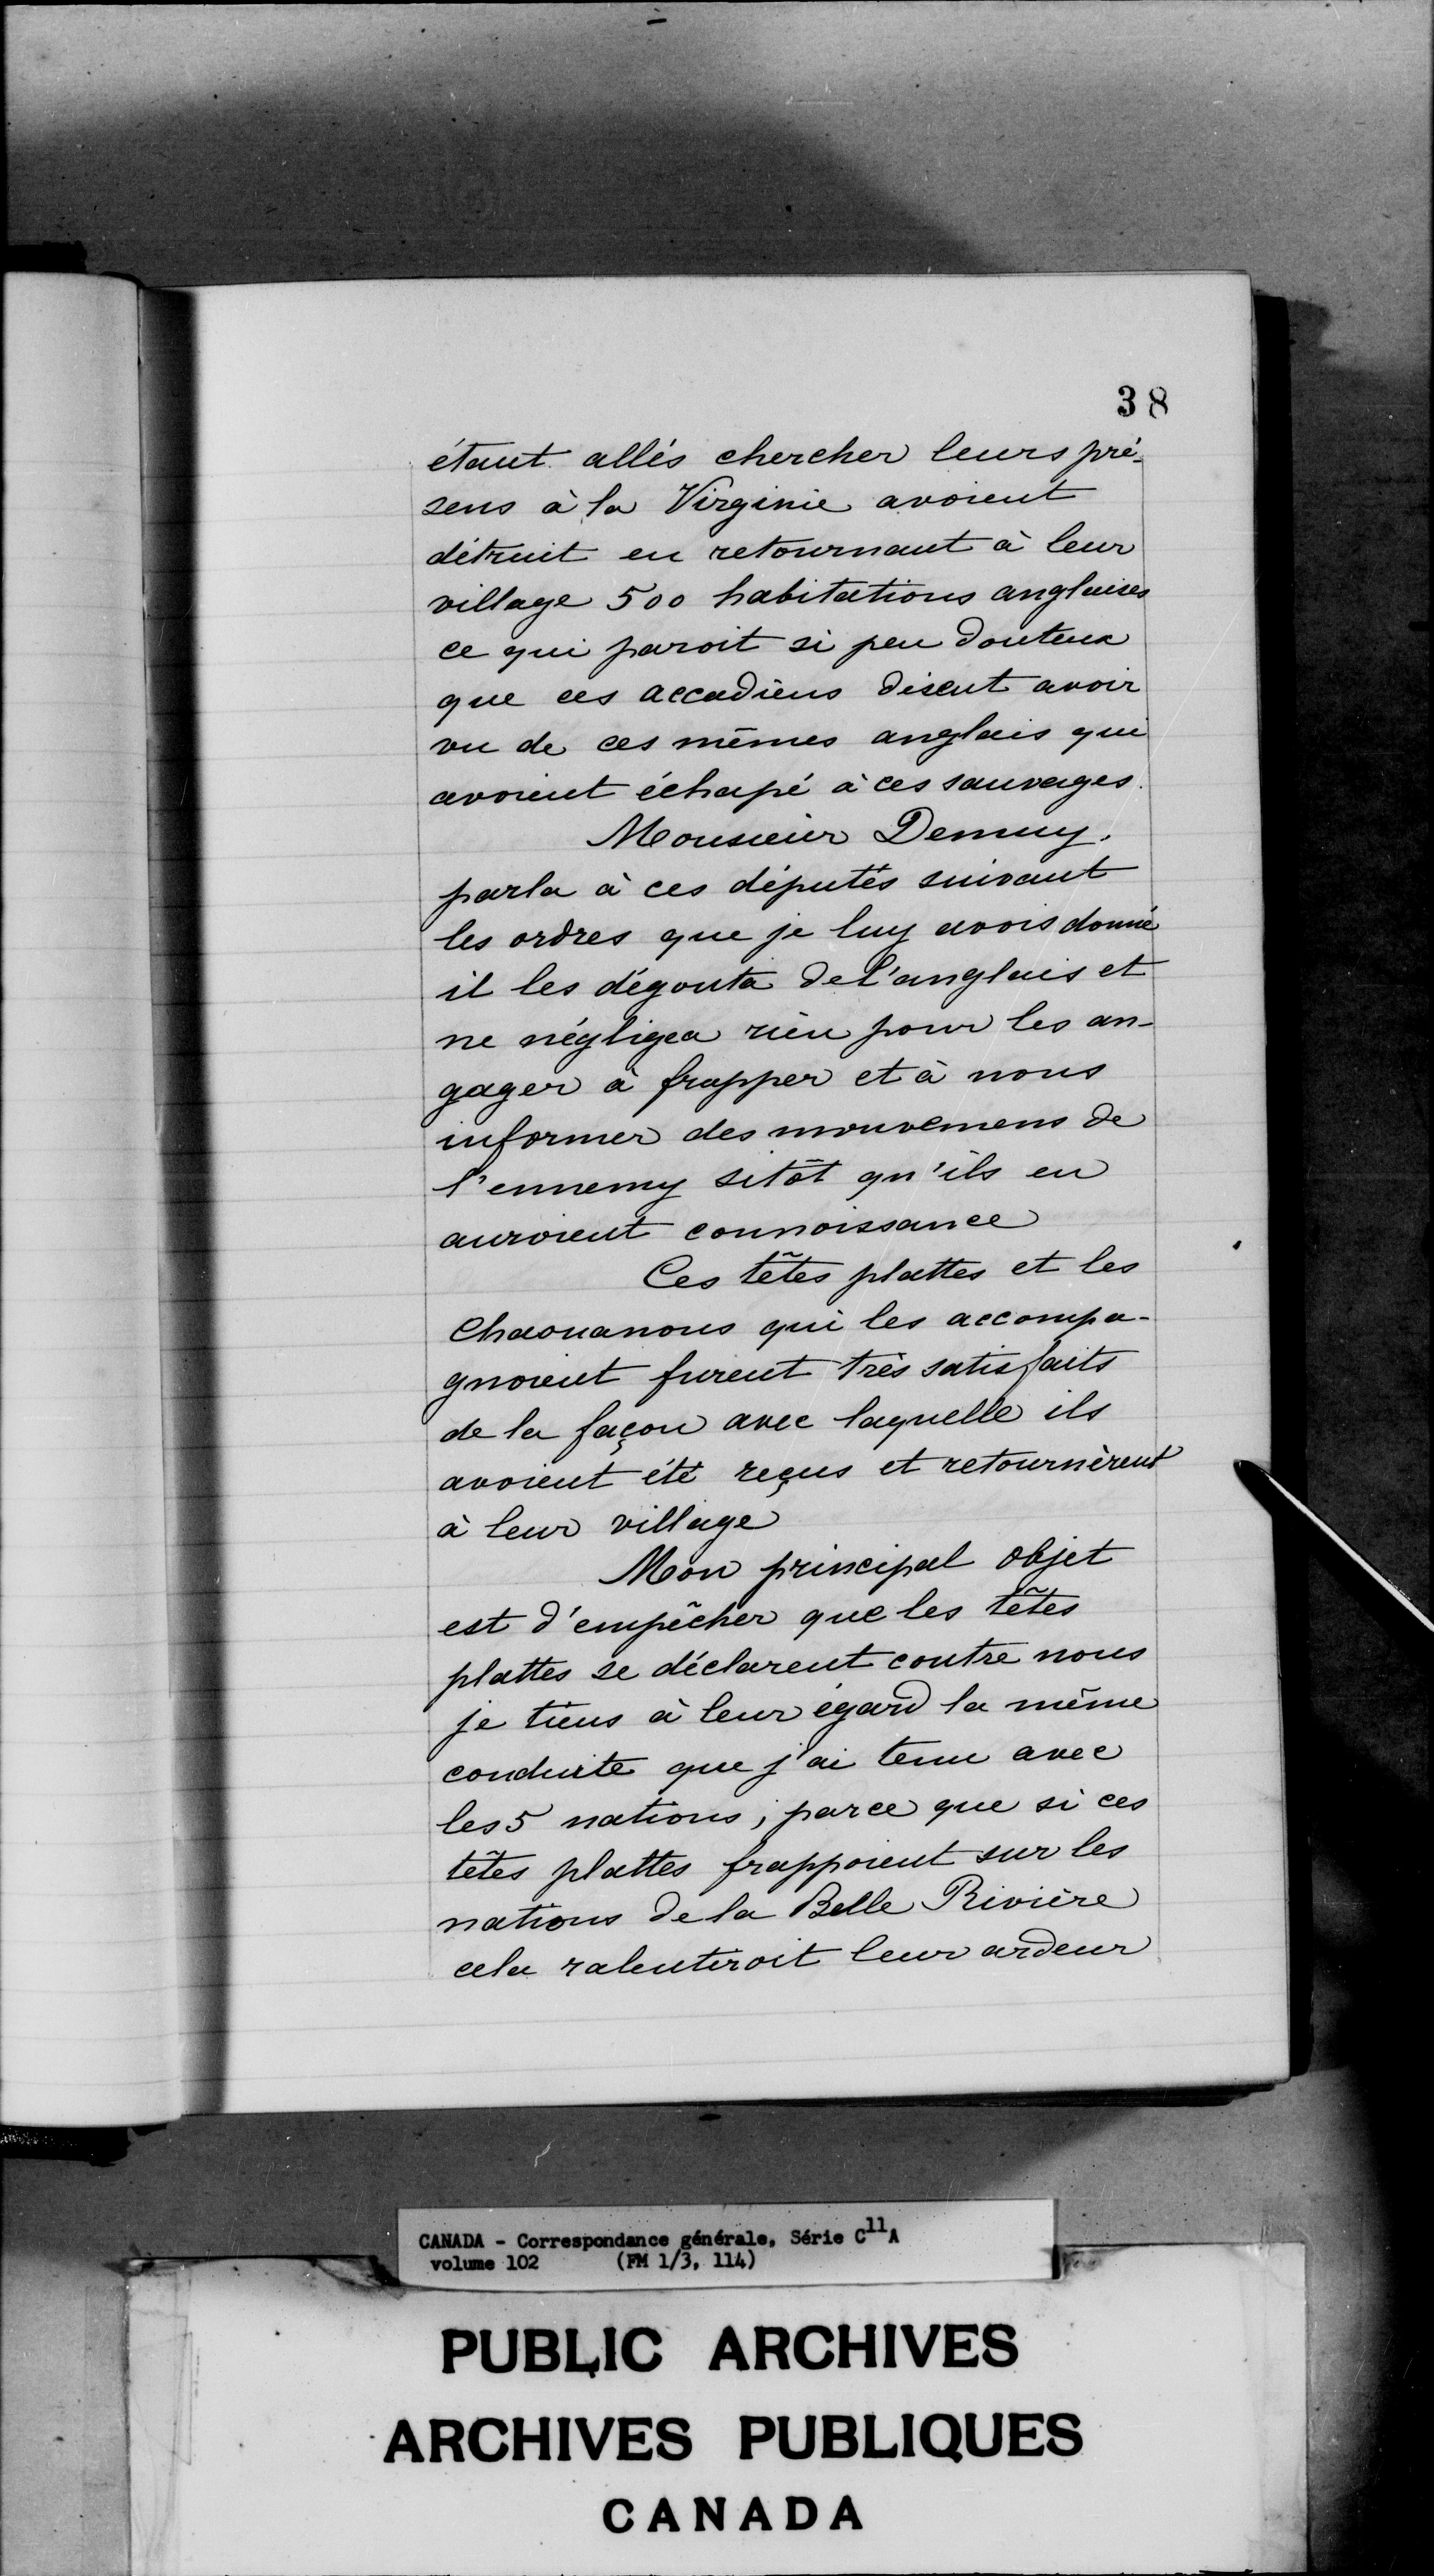 38
étant allés chercher leurs pré-
sens à la Virginie avoient
détruit en retournant à leur
village 500 habitations anglaises
ce qui paroit si peu douteux
que ces accadiens disent avoir
vu de ces mêmes anglais qui
avoient échapé à ces sauvages.
Monsieur Demuy.
parla à ces députés suivant
les ordres que je luy avois donné
il les dégouta de l'anglais et
ne négligea rien pour les an-
gager à frapper et à nous
informer des mouvemens de
l'ennemy sitôt qu'ils en
auroient connoissance
Ces têtes plattes et les
Chaouanons qui les accompa-
gnoient furent très satisfaits
de la façon avec laquelle ils
avoient été reçus et retournèrent
à leur village
Mon principal objet
est d'empêcher que les têtes
plattes se déclarent contre nous
je tiens à leur égard la même
conduite que j'ai tenu avec
les 5 nations; parce que si ces
têtes plattes frappoient sur les
nations de la Belle Rivière
cela ralentiroit leur ardeur
CANADA - Correspondance générale, Série C11A
volume 102 (FM 1/3, 114)
PUBLIC ARCHIVES
ARCHIVES PUBLIQUES
CANADA